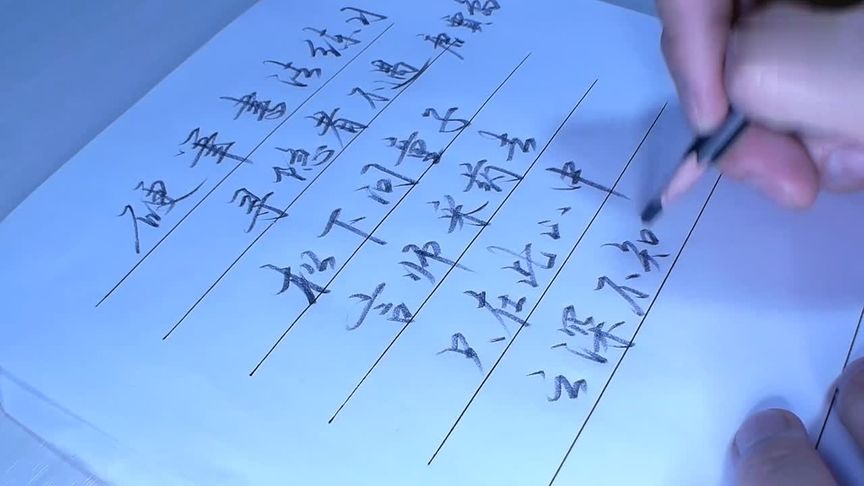 硬筆書法练习
尋隐者不遇 唐 賈島
松下问童子
言师采药去
只在此山中
云深不知